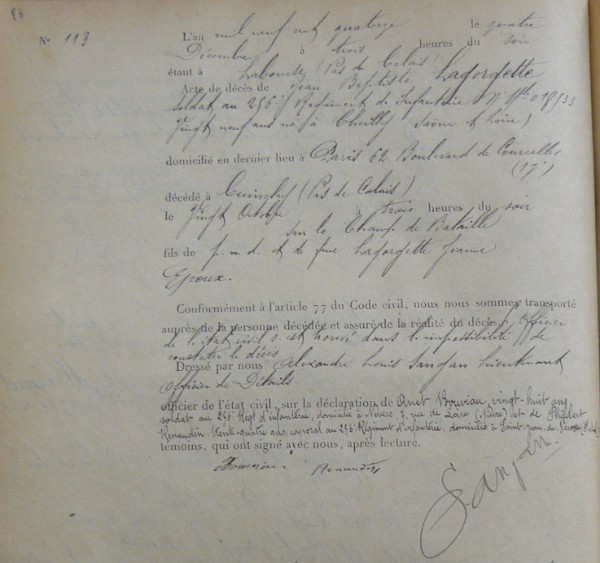 86
N° 113
L'an mil neuf cent quatorze le quatre
Décembre à trois heures du soir
étant à Labourse (Pas de Calais)
Acte de décès de Jean Baptiste Laforgette
soldat au 256e Régiment de Infanterie N° Mle
Vingt neuf ans né à Chailly Saône et Loire)
domicilié en dernier lieu à Paris 62 Boulevard de Courcelles
(17e)
décédé à Cuinchy (Pas de Calais)
le Vingt Octobre à trois heures du soir
sur le Champ de Bataille
fils de p. m. d. et de fme Laforgette Jeanne
Epoux.
Conformément à l'article 77 du Code civil, nous nous sommes transporté
auprès de la personne décédée et assuré de la réalité du décès. L'officier
de l'état civil s'est trouvé dans l'impossibilité de
constater le décès
Dressé par nous Alexandre Louis Sanjan Lieutenant
officier de Détails
officier de l'état civil, sur la déclaration de Bouviau, vingt-huit ans,
soldat au 256. Régt d'infanterie, domicilié à Nevers 7, rue de Loire (Nièvre) et de Philibert
Renaudin trente-quatre ans, caporal au 256 Régiment d'infanterie. domicilié à Saint-Jean-de-
témoins, qui ont signé avec nous, après lecture.
Bouviau Renaudin
Sanjan